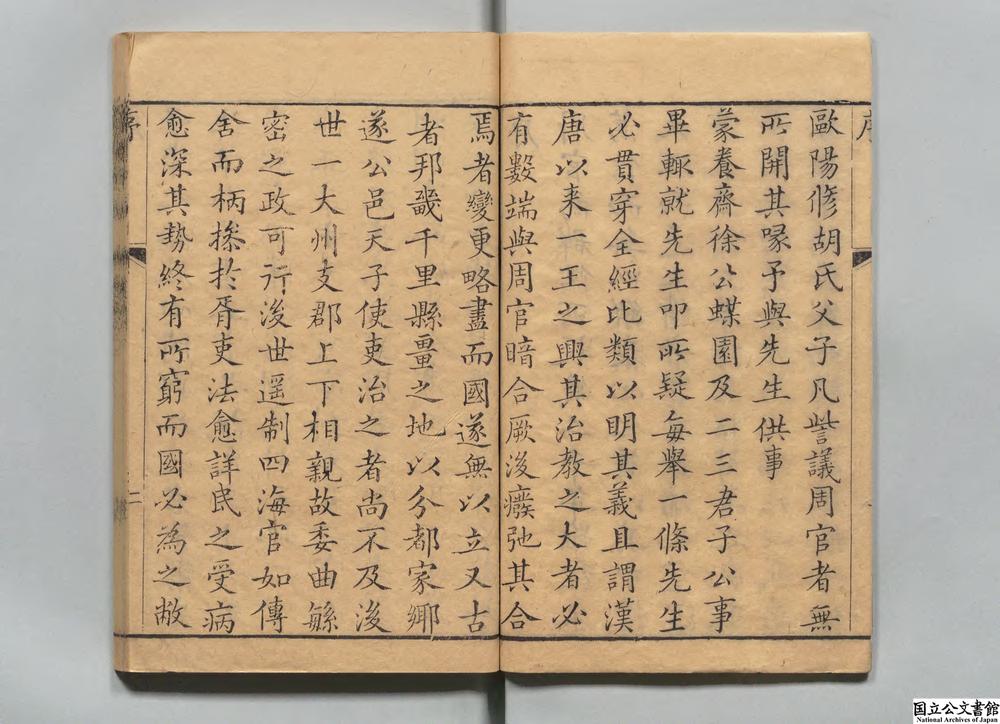 序
歐陽修胡氏父子凡訾議周官者無
所開其喙予與先生供事
蒙養齋徐公蝶園及二三君子公事
畢輒就先生叩所疑每舉一條先生
必貫穿全經比類以明其義且謂漢
唐以来一王之興其治教之大者必
有數端與周官暗合厥後癈弛其合
焉者變更略盡而國遂無以立又古
者邦畿千里縣畺之地以分都家鄉
遂公邑天子使吏治之者尚不及後
世一大州支郡上下相親故委曲緐
密之政可行後世遥制四海官如傳
舍而柄操於胥吏法愈詳民之受病
愈深其勢終有所窮而國必為之敝
序
二
国立公文書館
National Archives of Japan